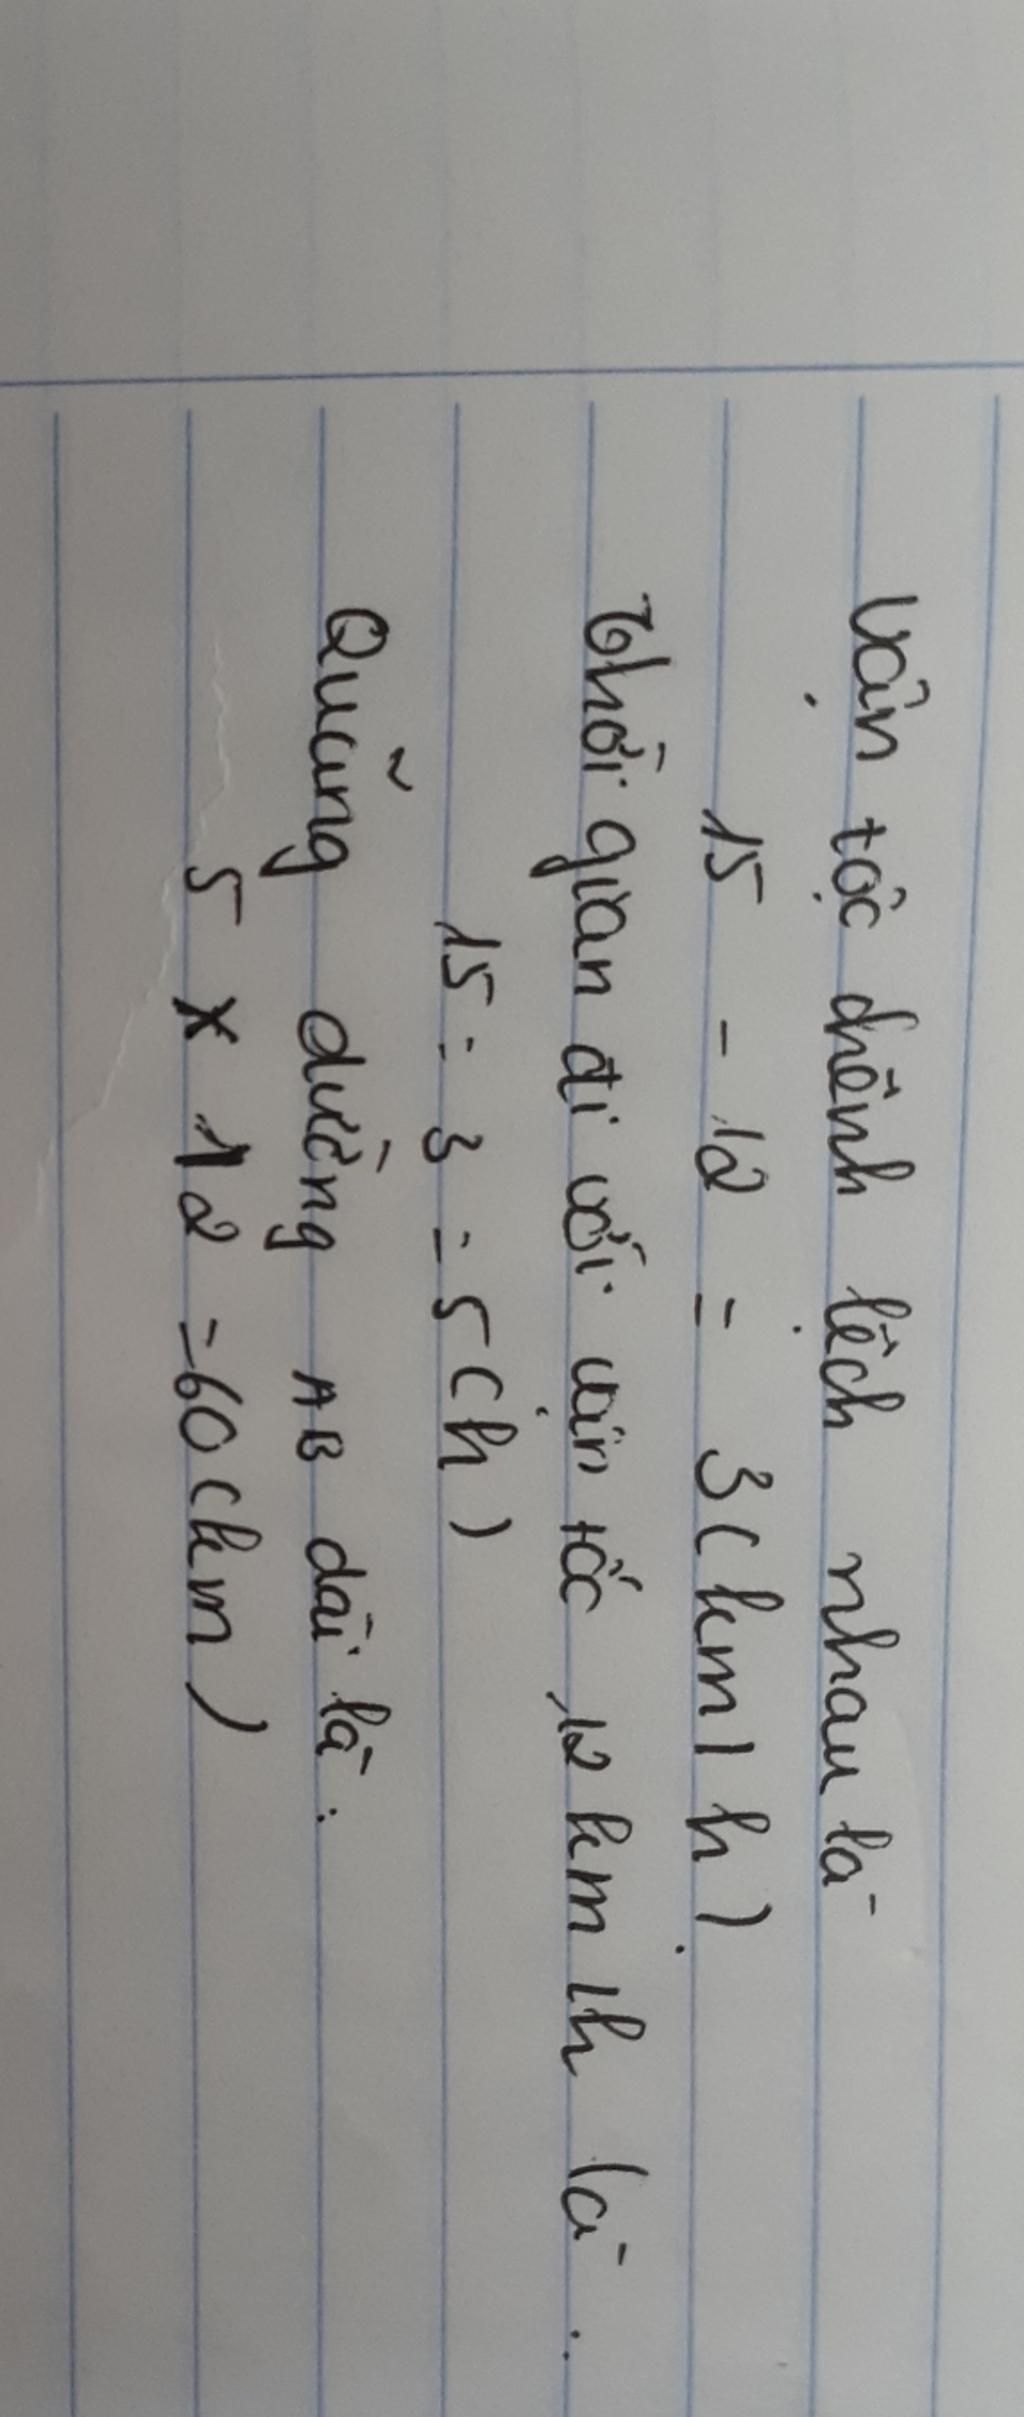 Vận tộc chênh lệch nhau là
15 - 12 = 3 (km/h)
Thời gian đi với vận tốc 12 km/h là :
15 : 3 = 5 (h)
Quãng đường AB dài là :
5 x 12 = 60 (km)